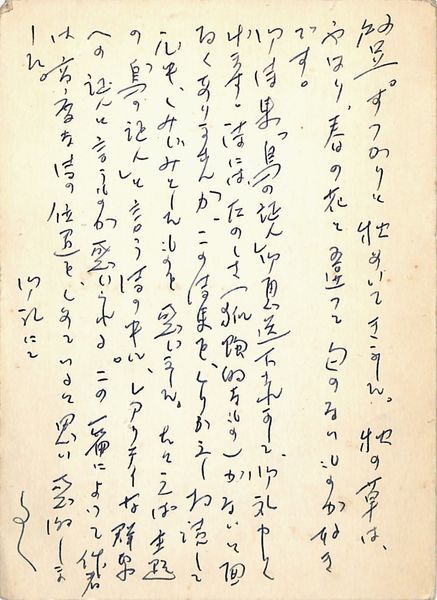 拝呈。すつかりと秋めいてきました。秋の草は、
やはり、春の花と違つて匂のないものが好き
です。
御詩集「鳥の証人」御恵送下されまして、御礼申上
げます。詩には、たのしさ（冒険的なもの）がないと面
白くありませんが、この詩集を、とりかえしお読して
元来、しみじみとしたものを思いました。たとえば主題
の「鳥の証人」と言う詩の中に、レアリテイな群衆
への証人と言うものが思いられる。この一篇によつて作者
は高度な詩の位置をしめていると思い感謝しま
した。
御礼にて